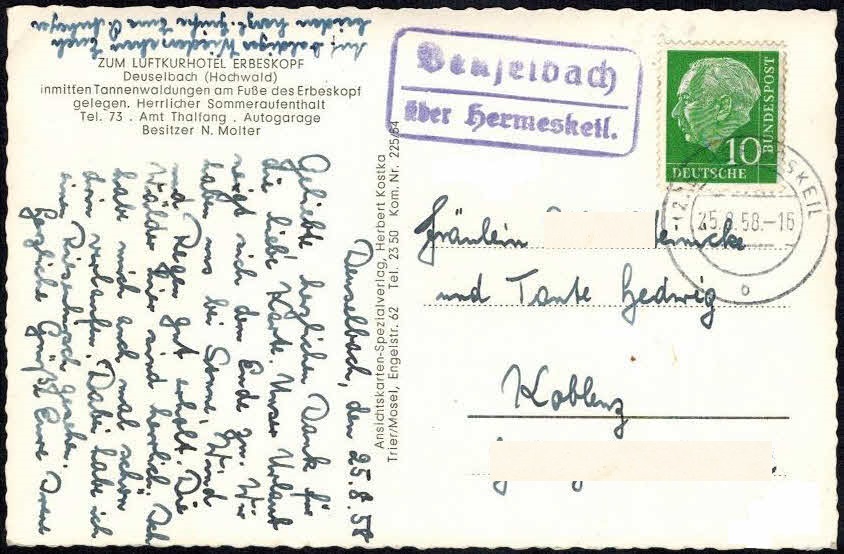 ZUM LUFTKURHOTEL ERBESKOPF
Deuselbach (Hochwald)
inmitten Tannenwaldungen am Fuße des Erbeskopf
gelegen. Herrlicher Sommeraufenthalt
Tel. 73 . Amt Thalfang . Autogarage
Besitzer N. Molter
Deuselbach, den 25.8.58
Geliebte herzlichen Dank für
die liebe Karte. Unser Urlaub
neigt sich dem Ende zu. Wir
haben uns bei Sonne, Wind
und Regen gut erholt. Die
Wälder hier sind herrlich. Ich
habe mich auch mal schön
drin verlaufen. Dabei habe ich
einen Riesenhirsch gesehen.
Herzliche Grüße Eure
Auf baldiges Wiedersehen Euch
beiden herzl. Grüße
Ansichtskarten-Spezialverlag, Herbert Kostka
Trier/Mosel, Engelstr. 62 Tel. 2350 Kom. Nr. 225/64
Deuselbach
über Hermeskeil.
10
DEUTSCHE
BUNDESPOST
SKEIL
25.8.58.-16
Fräulein
und Tante Hedwig
Koblenz